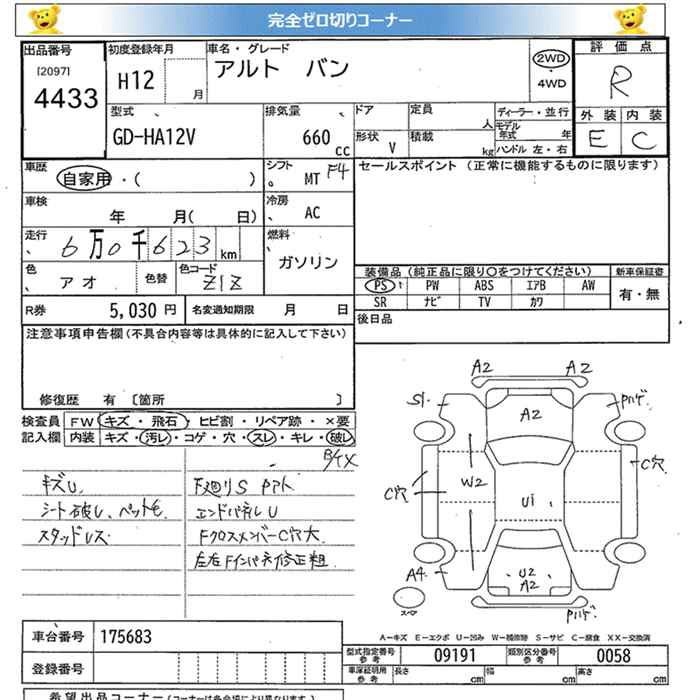 完全ゼロ切りコーナー
出品番号 初度登録年月 車名・グレード 評価点
[2097] 4433 H12 月 アルト バン 2WD ・ 4WD R
型式 排気量 ドア 定員 人 ディーラー・並行 外装 内装
GD-HA12V 660 cc 形状 V 積載 kg モデル年式 年 ハンドル 左・右 E C
車歴 自家用・( ) シフト MT F4 セールスポイント (正常に機能するものに限ります)
車検 年 月( 日) 冷房 AC
走行 6万0千623 km 燃料 ガソリン
色 アオ 色替 色コード Z1Z 装備品 (純正品に限り○をつけてください) 新車保証書
PS PW ABS エアB AW 有・無
SR ナビ TV カワ
R券 5,030円 名変通知期限 月 日 後日品
注意事項申告欄(不具合内容等は具体的に記入して下さい)
修復歴 有 〔箇所 〕
検査員 FW キズ・飛石・ヒビ割・リペア跡・×要
記入欄 内装 キズ・汚レ・コゲ・穴・スレ・キレ・破レ
キズU. F廻りS
シート破レ、ペット毛 エンドパネルU
スタッドレス FクロスメンバーC穴大
左右Fインパネ修正粗
A2 A2
S1 A2 Pハゲ
C穴 W2 U1 C穴
A4 U2 A2
スペア Pハゲ
A−キズ E−エクボ U−凹み W−補修跡 S−サビ C−腐食 XX−交換済
車台番号 175683
型式指定番号 参考 09191 類別区分番号 参考 0058
登録番号 車庫証明用 参考 長さ cm 幅 cm 高さ cm
希望出品コーナー (コーナーは各会場により異なります。)